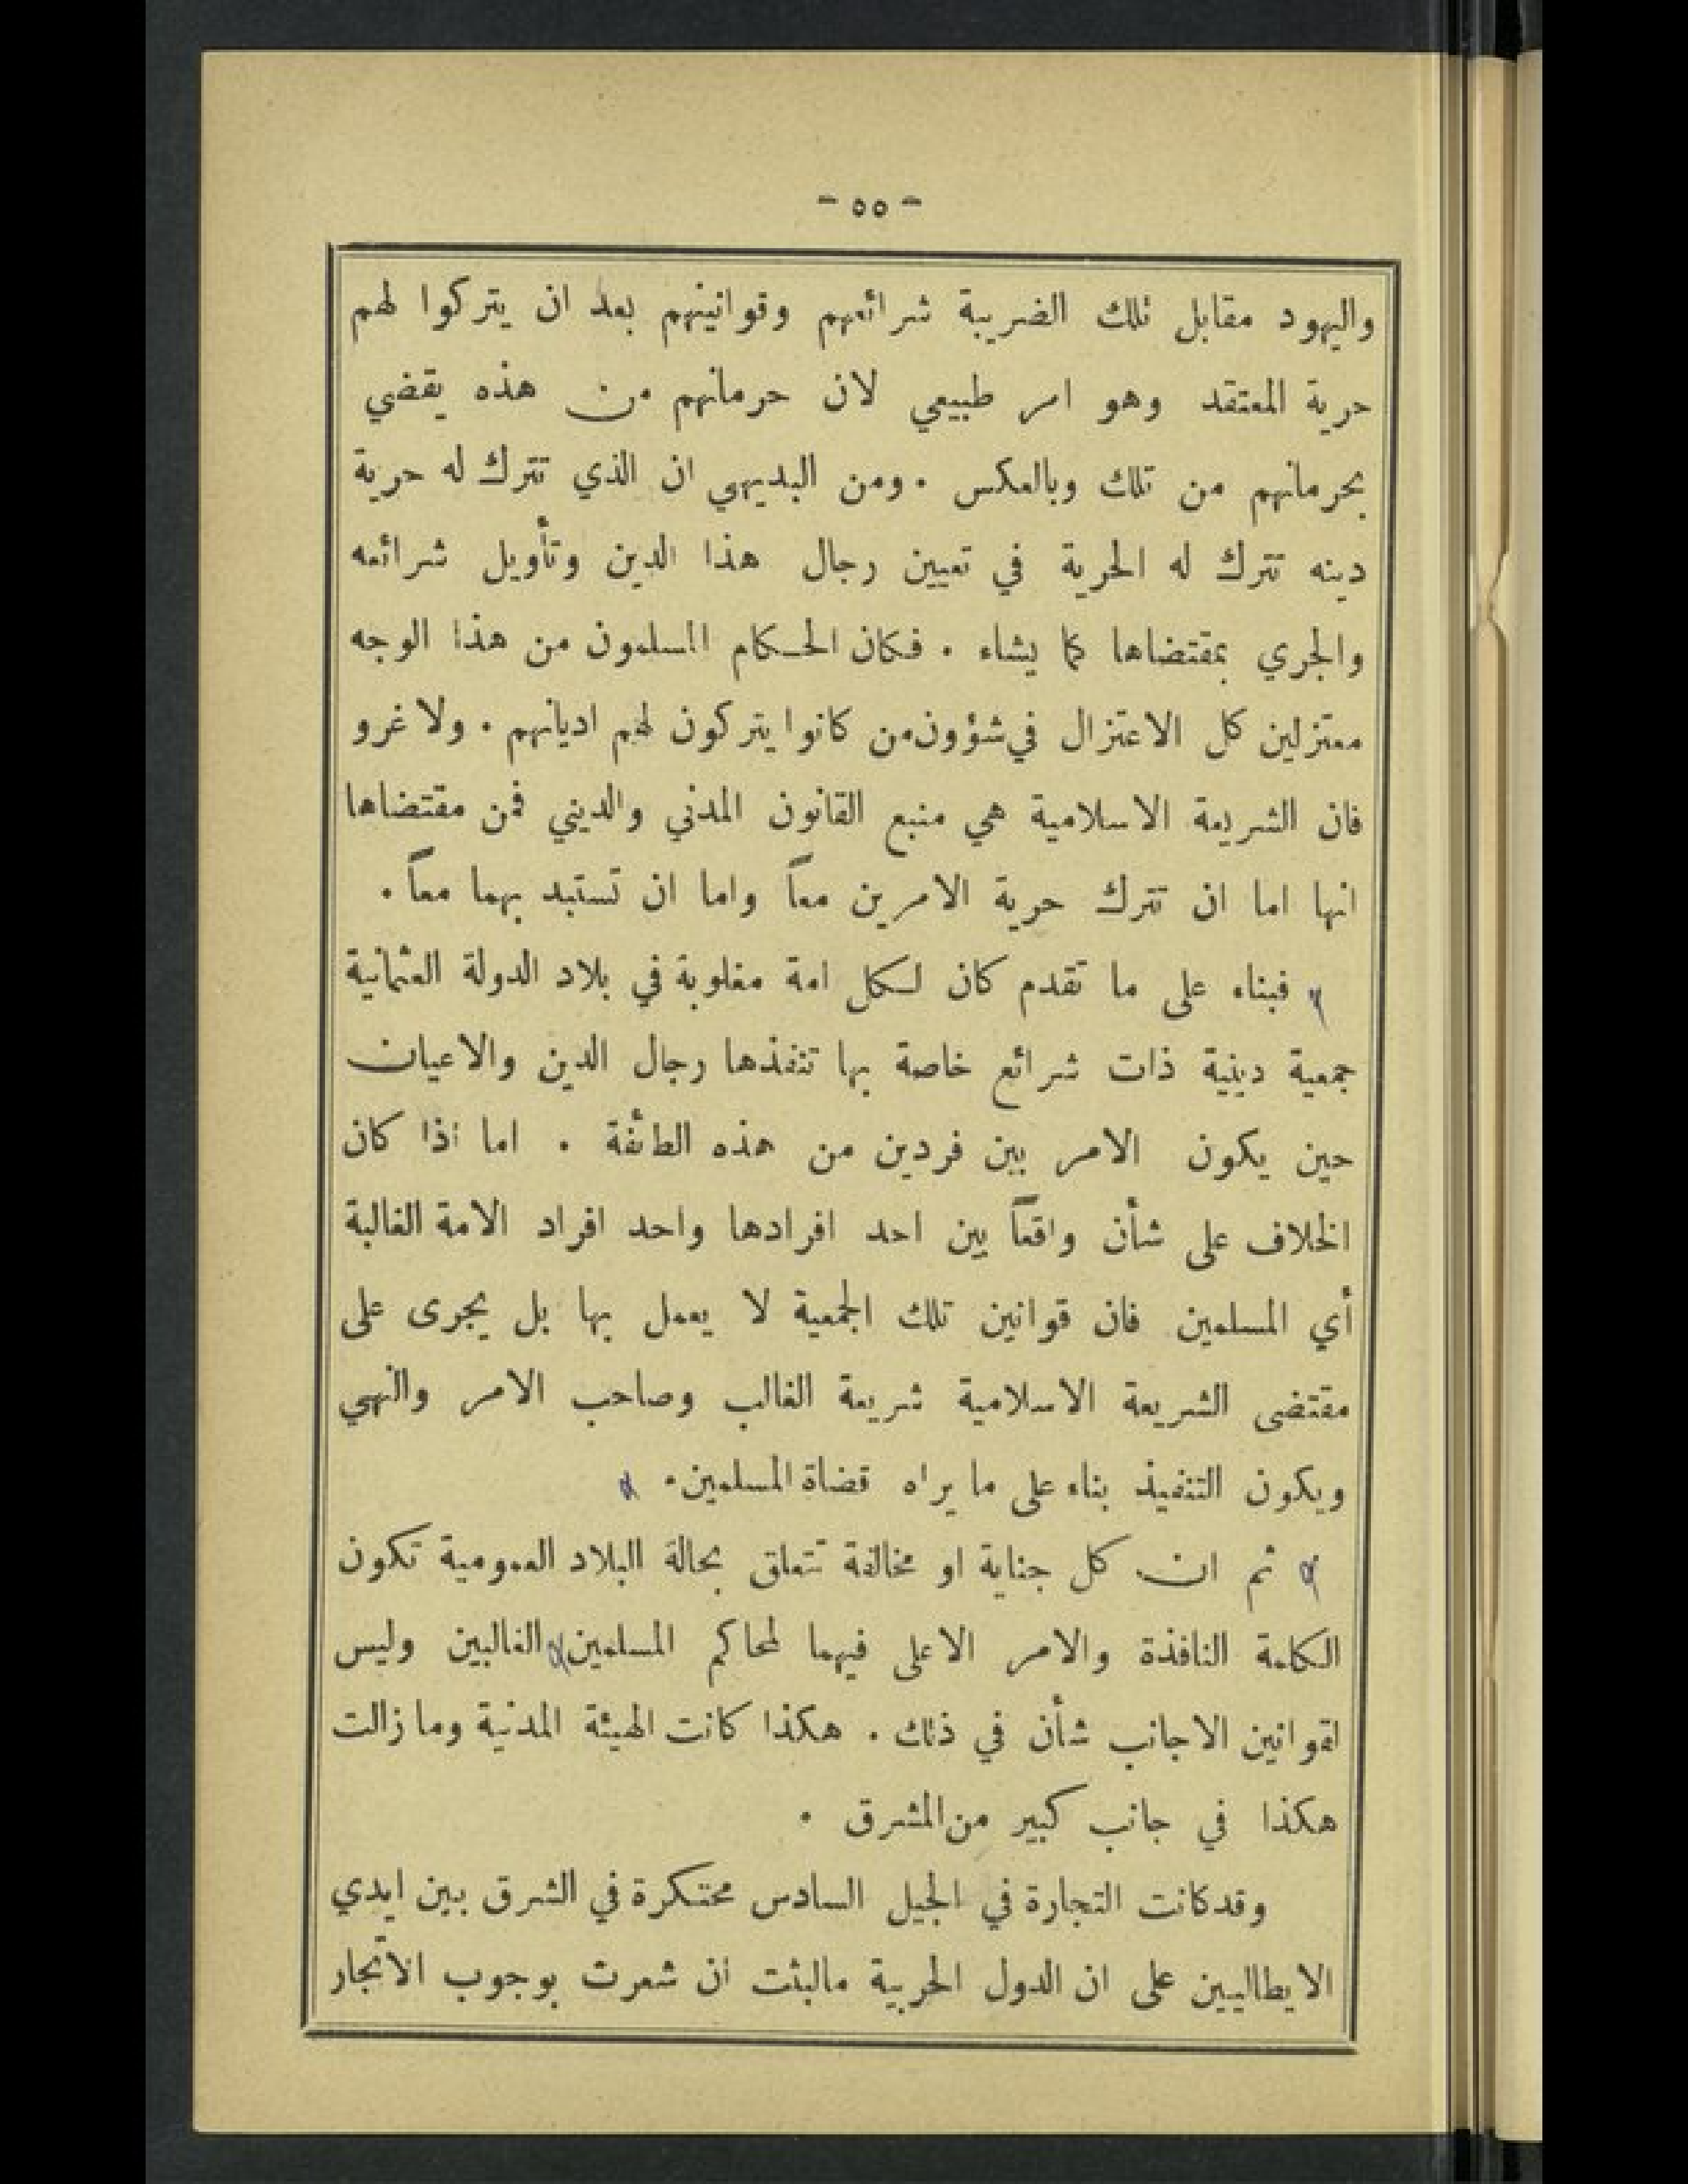 - ٥٥ -
واليهود مقابل تلك الضريبة شرائعهم وقوانينهم بعد ان يتركوا لهم
حرية المعتقد وهو امر طبيعي لان حرمانهم من هذه يقضي
بحرمانهم من تلك وبالعكس . ومن البديهي ان الذي تترك له حرية
دينه تترك له الحرية في تعيين رجال هذا الدين وتأويل شرائعه
والجري بمقتضاها كما يشاء . فكان الحكام المسلمون من هذا الوجه
معتزلين كل الاعتزال في شؤون من كانوا يتركون لهم اديانهم . ولا غرو
فان الشريعة الاسلامية هي منبع القانون المدني والديني فمن مقتضاها
انها اما ان تترك حرية الامرين معاً واما ان تستبد بهما معاً .
فبناء على ما تقدم كان لكل امة مغلوبة في بلاد الدولة العثمانية
جمعية دينية ذات شرائع خاصة بها تنفذها رجال الدين والاعيان
حين يكون الامر بين فردين من هذه الطائفة . اما اذا كان
الخلاف على شأن واقعاً بين احد افرادها واحد افراد الامة الغالبة
أي المسلمين فان قوانين تلك الجمعية لا يعمل بها بل يجرى على
مقتضى الشريعة الاسلامية شريعة الغالب وصاحب الامر والنهي
ويكون التنفيذ بناء على ما يراه قضاة المسلمين .
ثم ان كل جناية او مخالفة تتعلق بحالة البلاد العمومية تكون
الكلمة النافذة والامر الاعلى فيهما لمحاكم المسلمين الغالبين وليس
لقوانين الاجانب شأن في ذلك . هكذا كانت الهيئة المدنية وما زالت
هكذا في جانب كبير من المشرق .
وقد كانت التجارة في الجيل السادس محتكرة في الشرق بين ايدي
الايطاليين على ان الدول الحربية مالبثت ان شعرت بوجوب الاتجار